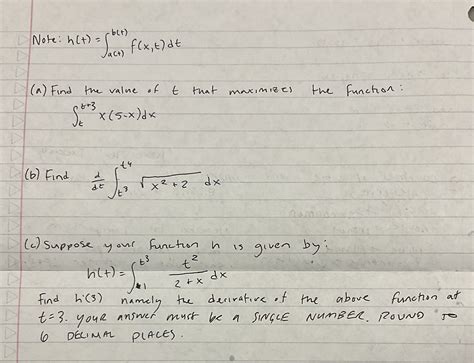 Note: h(t) = ∫_{a(t)}^{b(t)} f(x,t) dt
(a) Find the value of t that maximizes the function:
∫_{t}^{t+3} x(5-x)dx
(b) Find d/dt ∫_{t^3}^{t^4} √(x^2+2) dx
(c) Suppose your function h is given by:
h(t) = ∫_{1}^{t^3} t^2/(2+x) dx
Find h'(3) namely the derivative of the above function at
t=3. YOUR ANSWER MUST BE A SINGLE NUMBER. ROUND TO
6 DECIMAL PLACES.